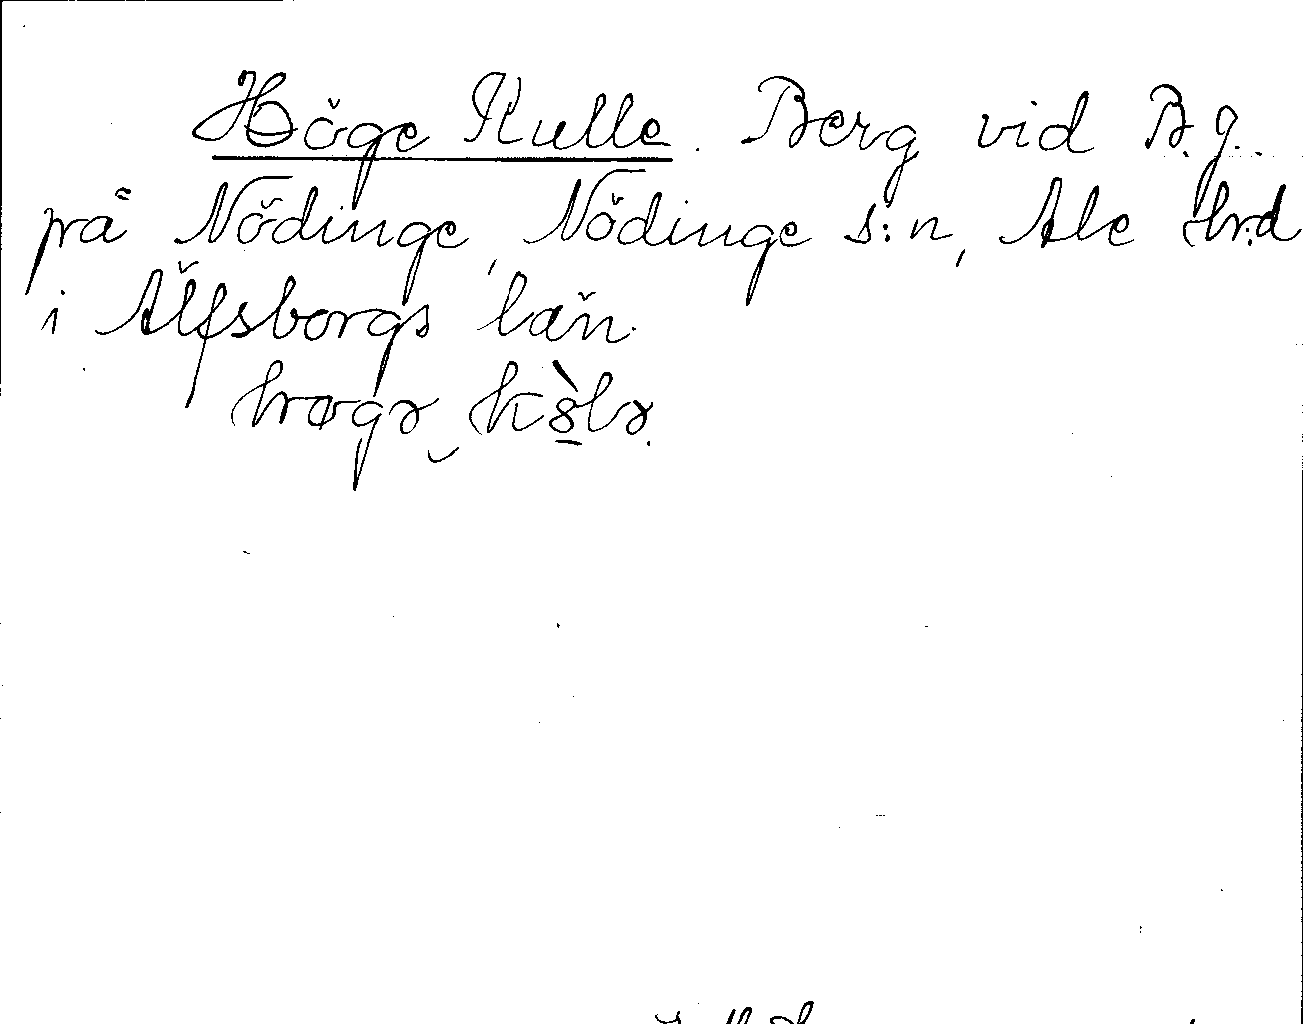 Höge Kulle. Berg vid B.g.
på Nödinge, Nödinge s:n, Ale hrd
i Älfsborgs län.